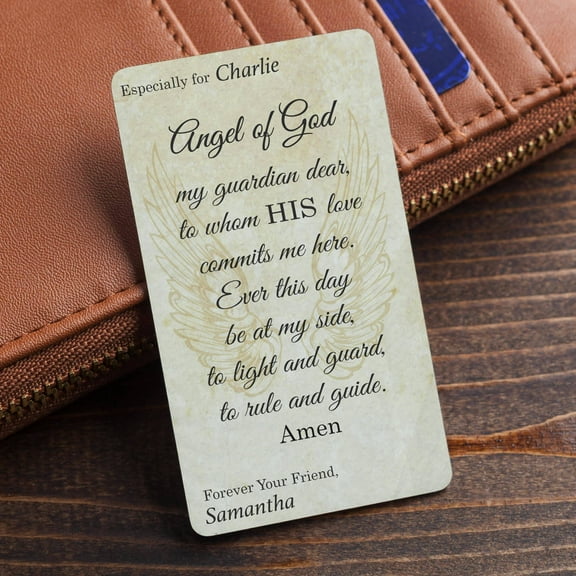 Especially for Charlie
Angel of God
my guardian dear,
to whom HIS love
commits me here.
Ever this day
be at my side,
to light and guard,
to rule and guide.
Amen
Forever Your Friend,
Samantha